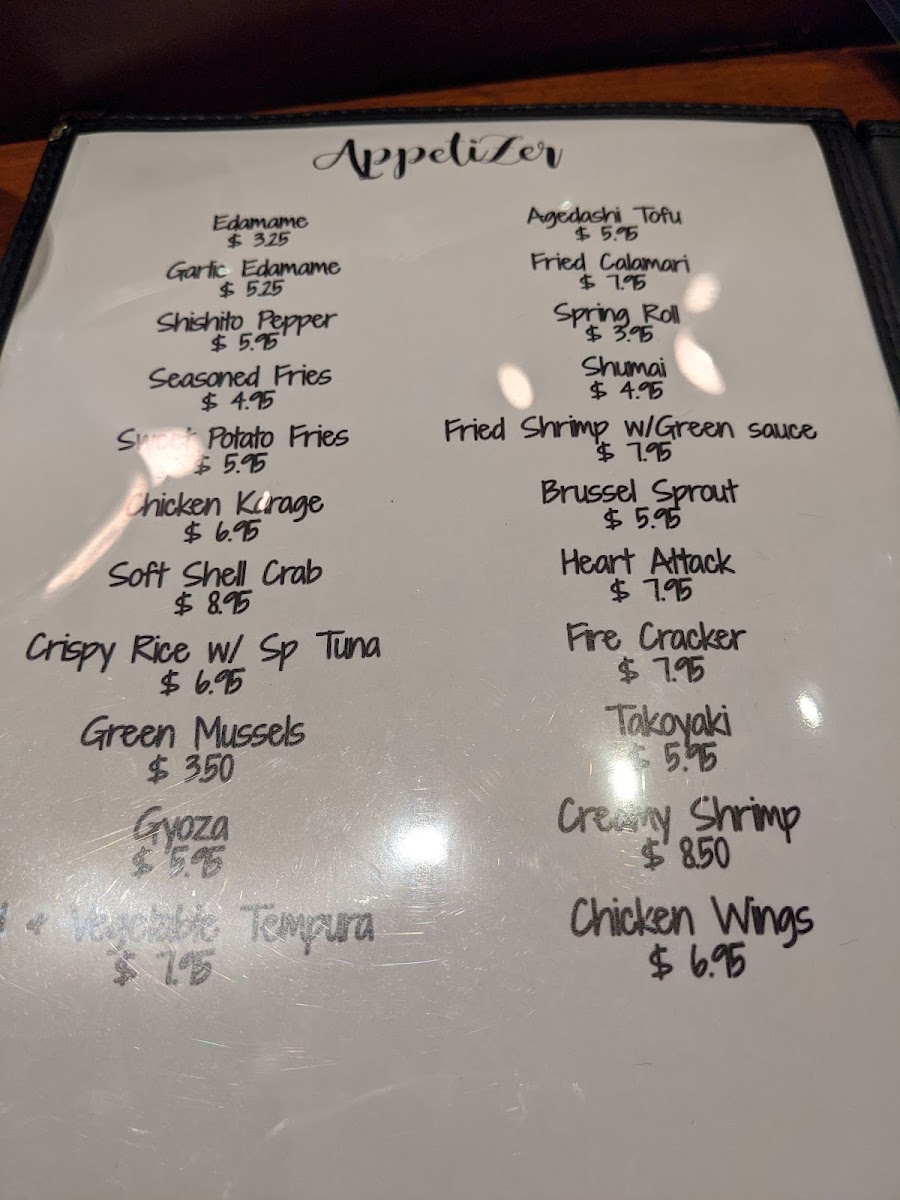 Appetizer
Edamame
$ 3.25
Garlic Edamame
$ 5.25
Shishito Pepper
$ 5.95
Seasoned Fries
$ 4.95
Sweet Potato Fries
$ 5.95
Chicken Karage
$ 6.95
Soft Shell Crab
$ 8.95
Crispy Rice w/ Sp Tuna
$ 6.95
Green Mussels
$ 3.50
Gyoza
$ 5.95
+ Vegetable Tempura
$ 7.95
Agedashi Tofu
$ 5.95
Fried Calamari
$ 7.95
Spring Roll
$ 3.95
Shumai
$ 4.95
Fried Shrimp w/Green sauce
$ 7.95
Brussel Sprout
$ 5.95
Heart Attack
$ 7.95
Fire Cracker
$ 7.95
Takoyaki
$ 5.95
Creamy Shrimp
$ 8.50
Chicken Wings
$ 6.95